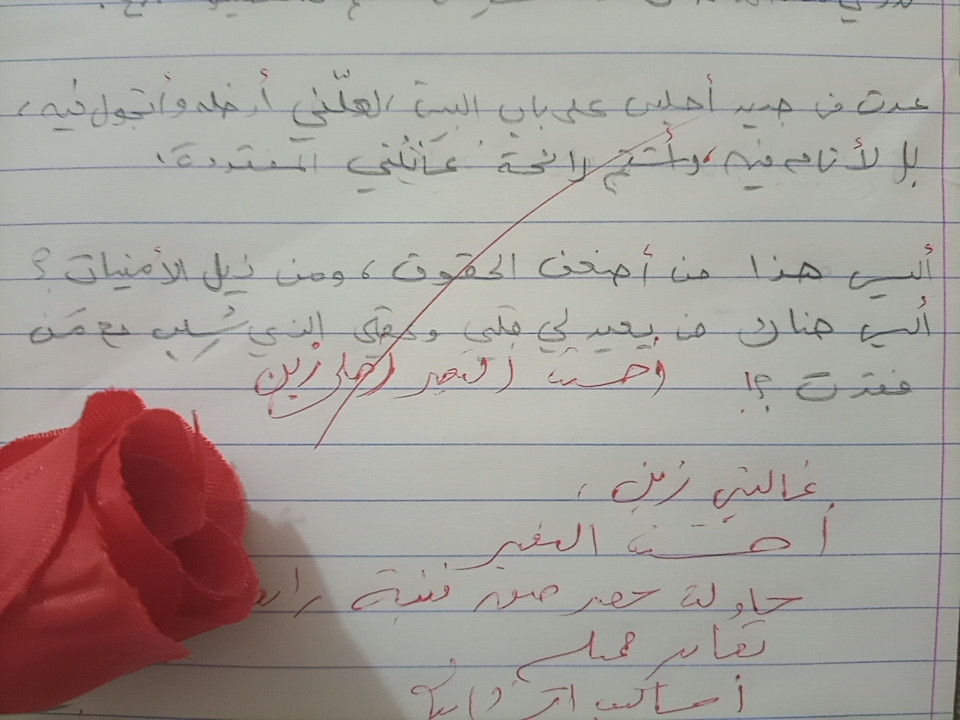 عدت من جديد أجلس على باب البيت لعلّني أدخله وأتجول فيه،
بل لأنام فيه، وأشتم رائحة عائلتي المفقودة.
أليس هذا من أضعف الحقوق، ومن نيل الأمنيات؟
أليس هناك من يعيد لي قلبي وعقلي الذي سُلِب مع مَن
فقدت؟!
أحسنت التعبير الغالي زين
غاليتي زين،
أحسنت التعبير
محاولة صور فنية
تعابير جميلة